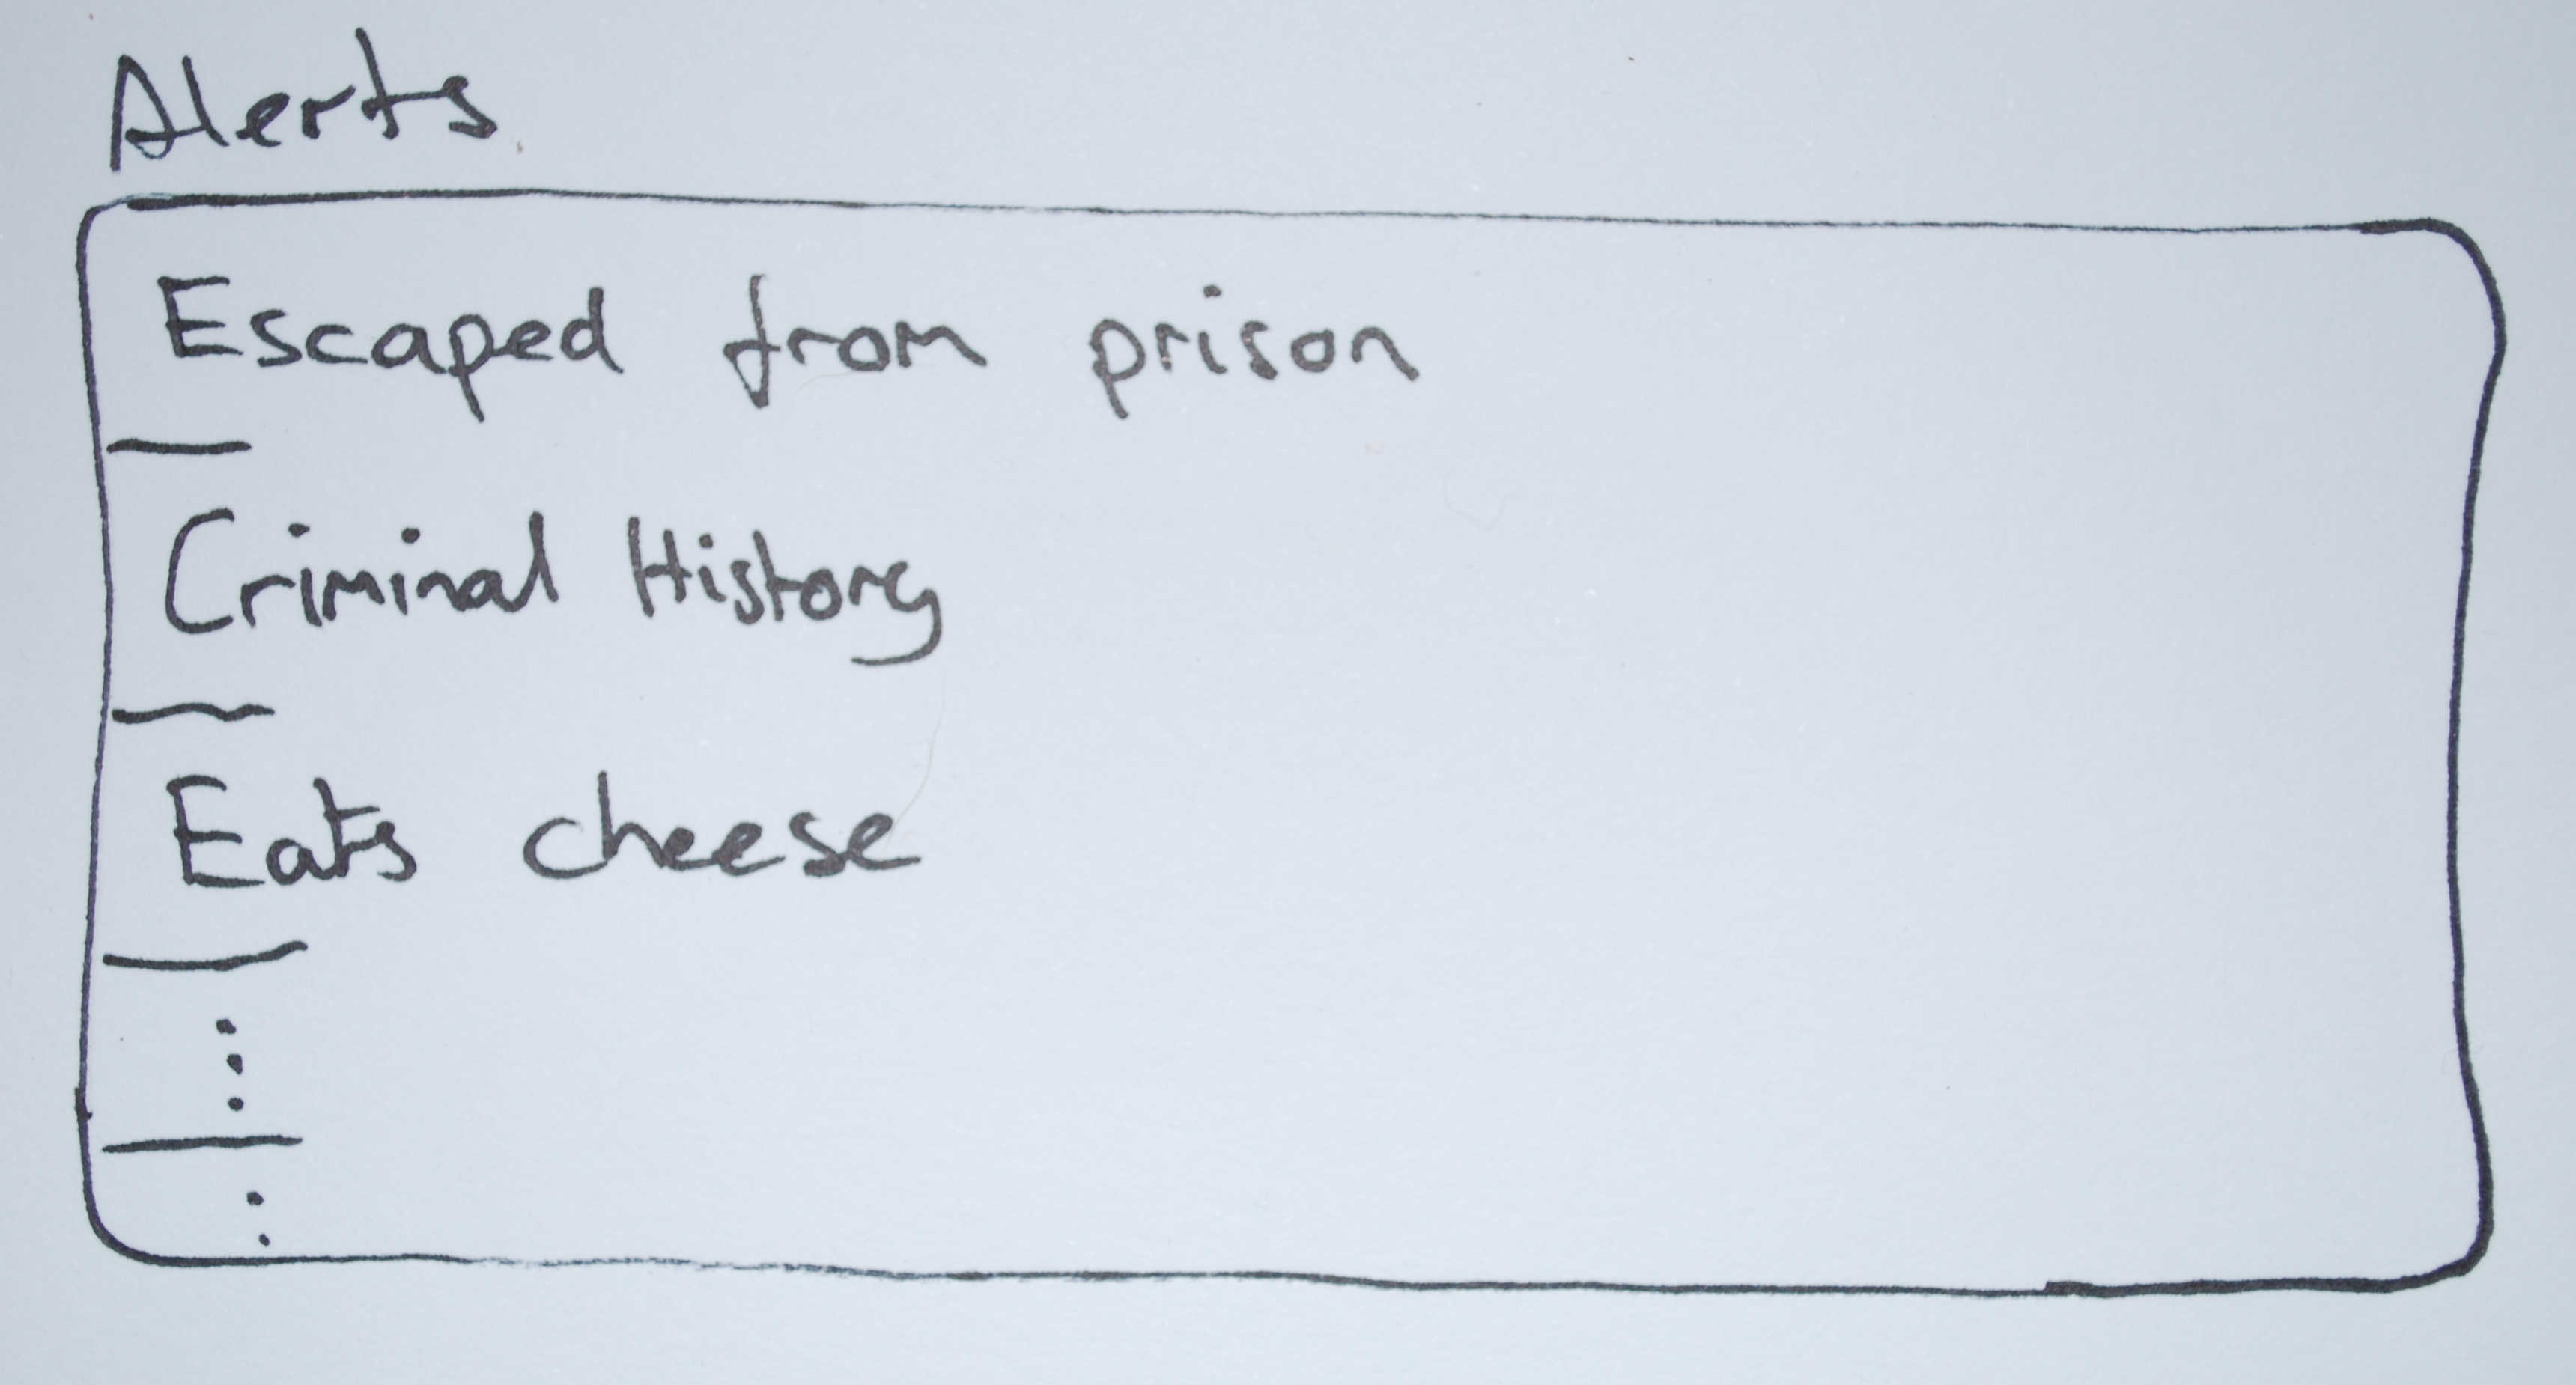 Alerts
Escaped from prison
Criminal History
Eats cheese